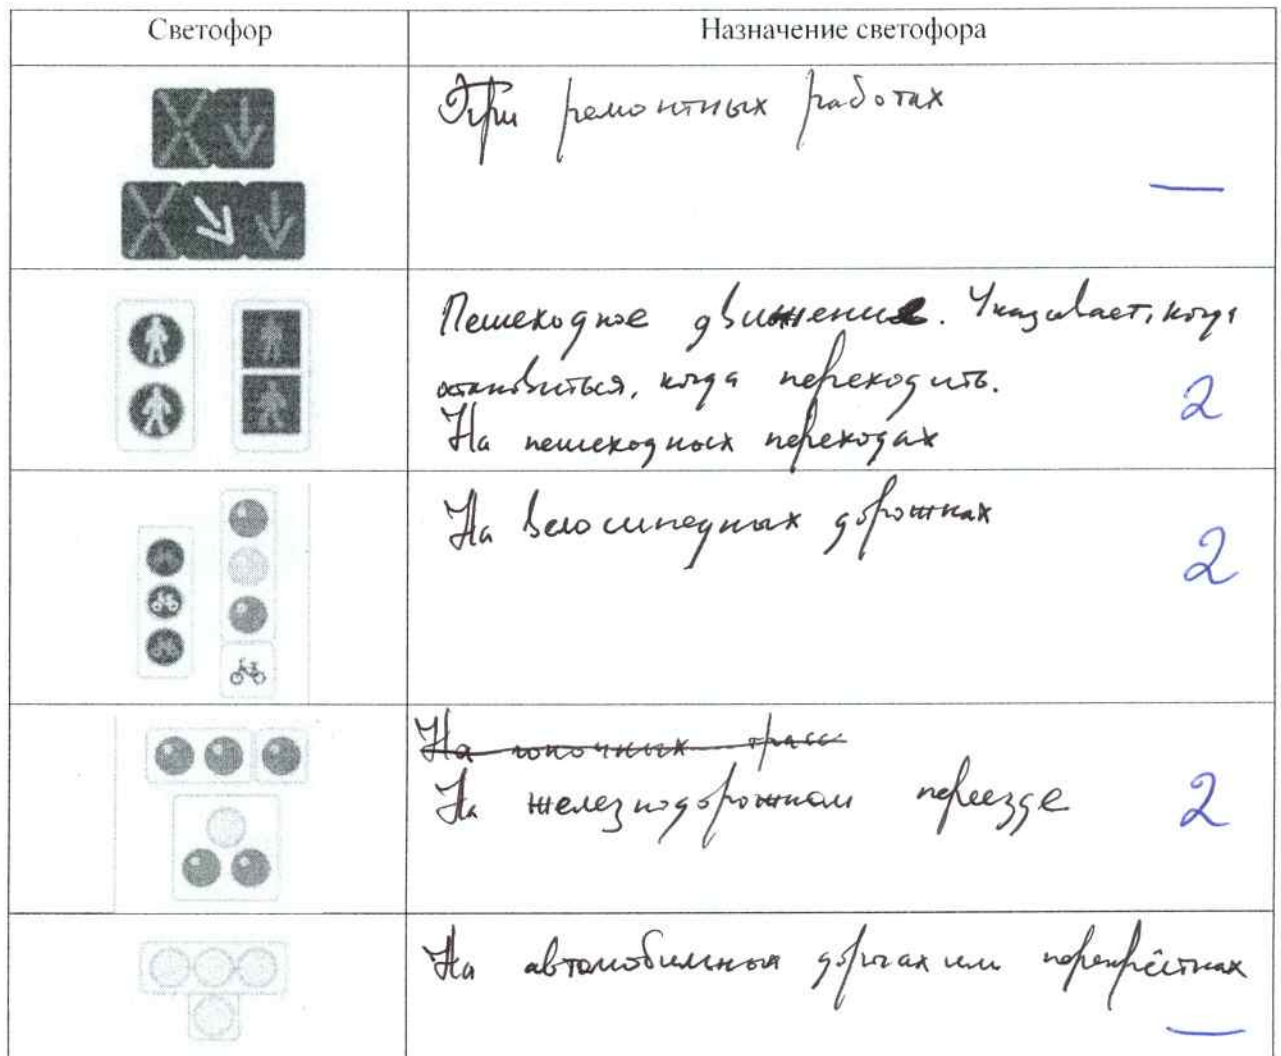 Светофор
Назначение светофора
При ремонтных работах
—
Пешеходное движение. Указывает, когда
остановиться, когда переходить.
На пешеходных переходах
2
На велосипедных дорожках
2
~~На гоночных трасс~~
На железнодорожном переезде
2
На автомобильных дорогах или перекрёстках
—